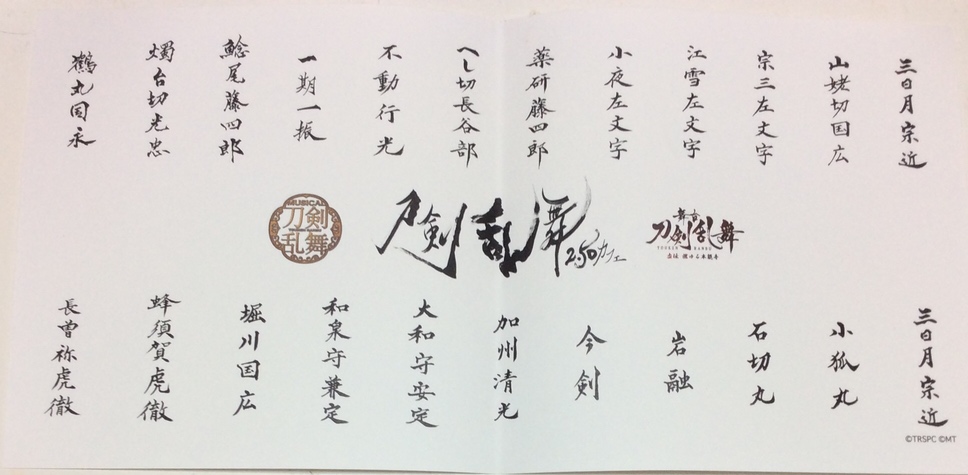 三日月宗近
山姥切国広
宗三左文字
江雪左文字
小夜左文字
薬研藤四郎
へし切長谷部
不動行光
一期一振
鯰尾藤四郎
燭台切光忠
鶴丸国永
MUSICAL
刀剣
乱舞
刀剣乱舞
2.5Dカフェ
舞台
刀剣乱舞
TOUKEN RANBU
虚伝 燃ゆる本能寺
三日月宗近
小狐丸
石切丸
岩融
今剣
加州清光
大和守安定
和泉守兼定
堀川国広
蜂須賀虎徹
長曽祢虎徹
©TRSPC ©MT